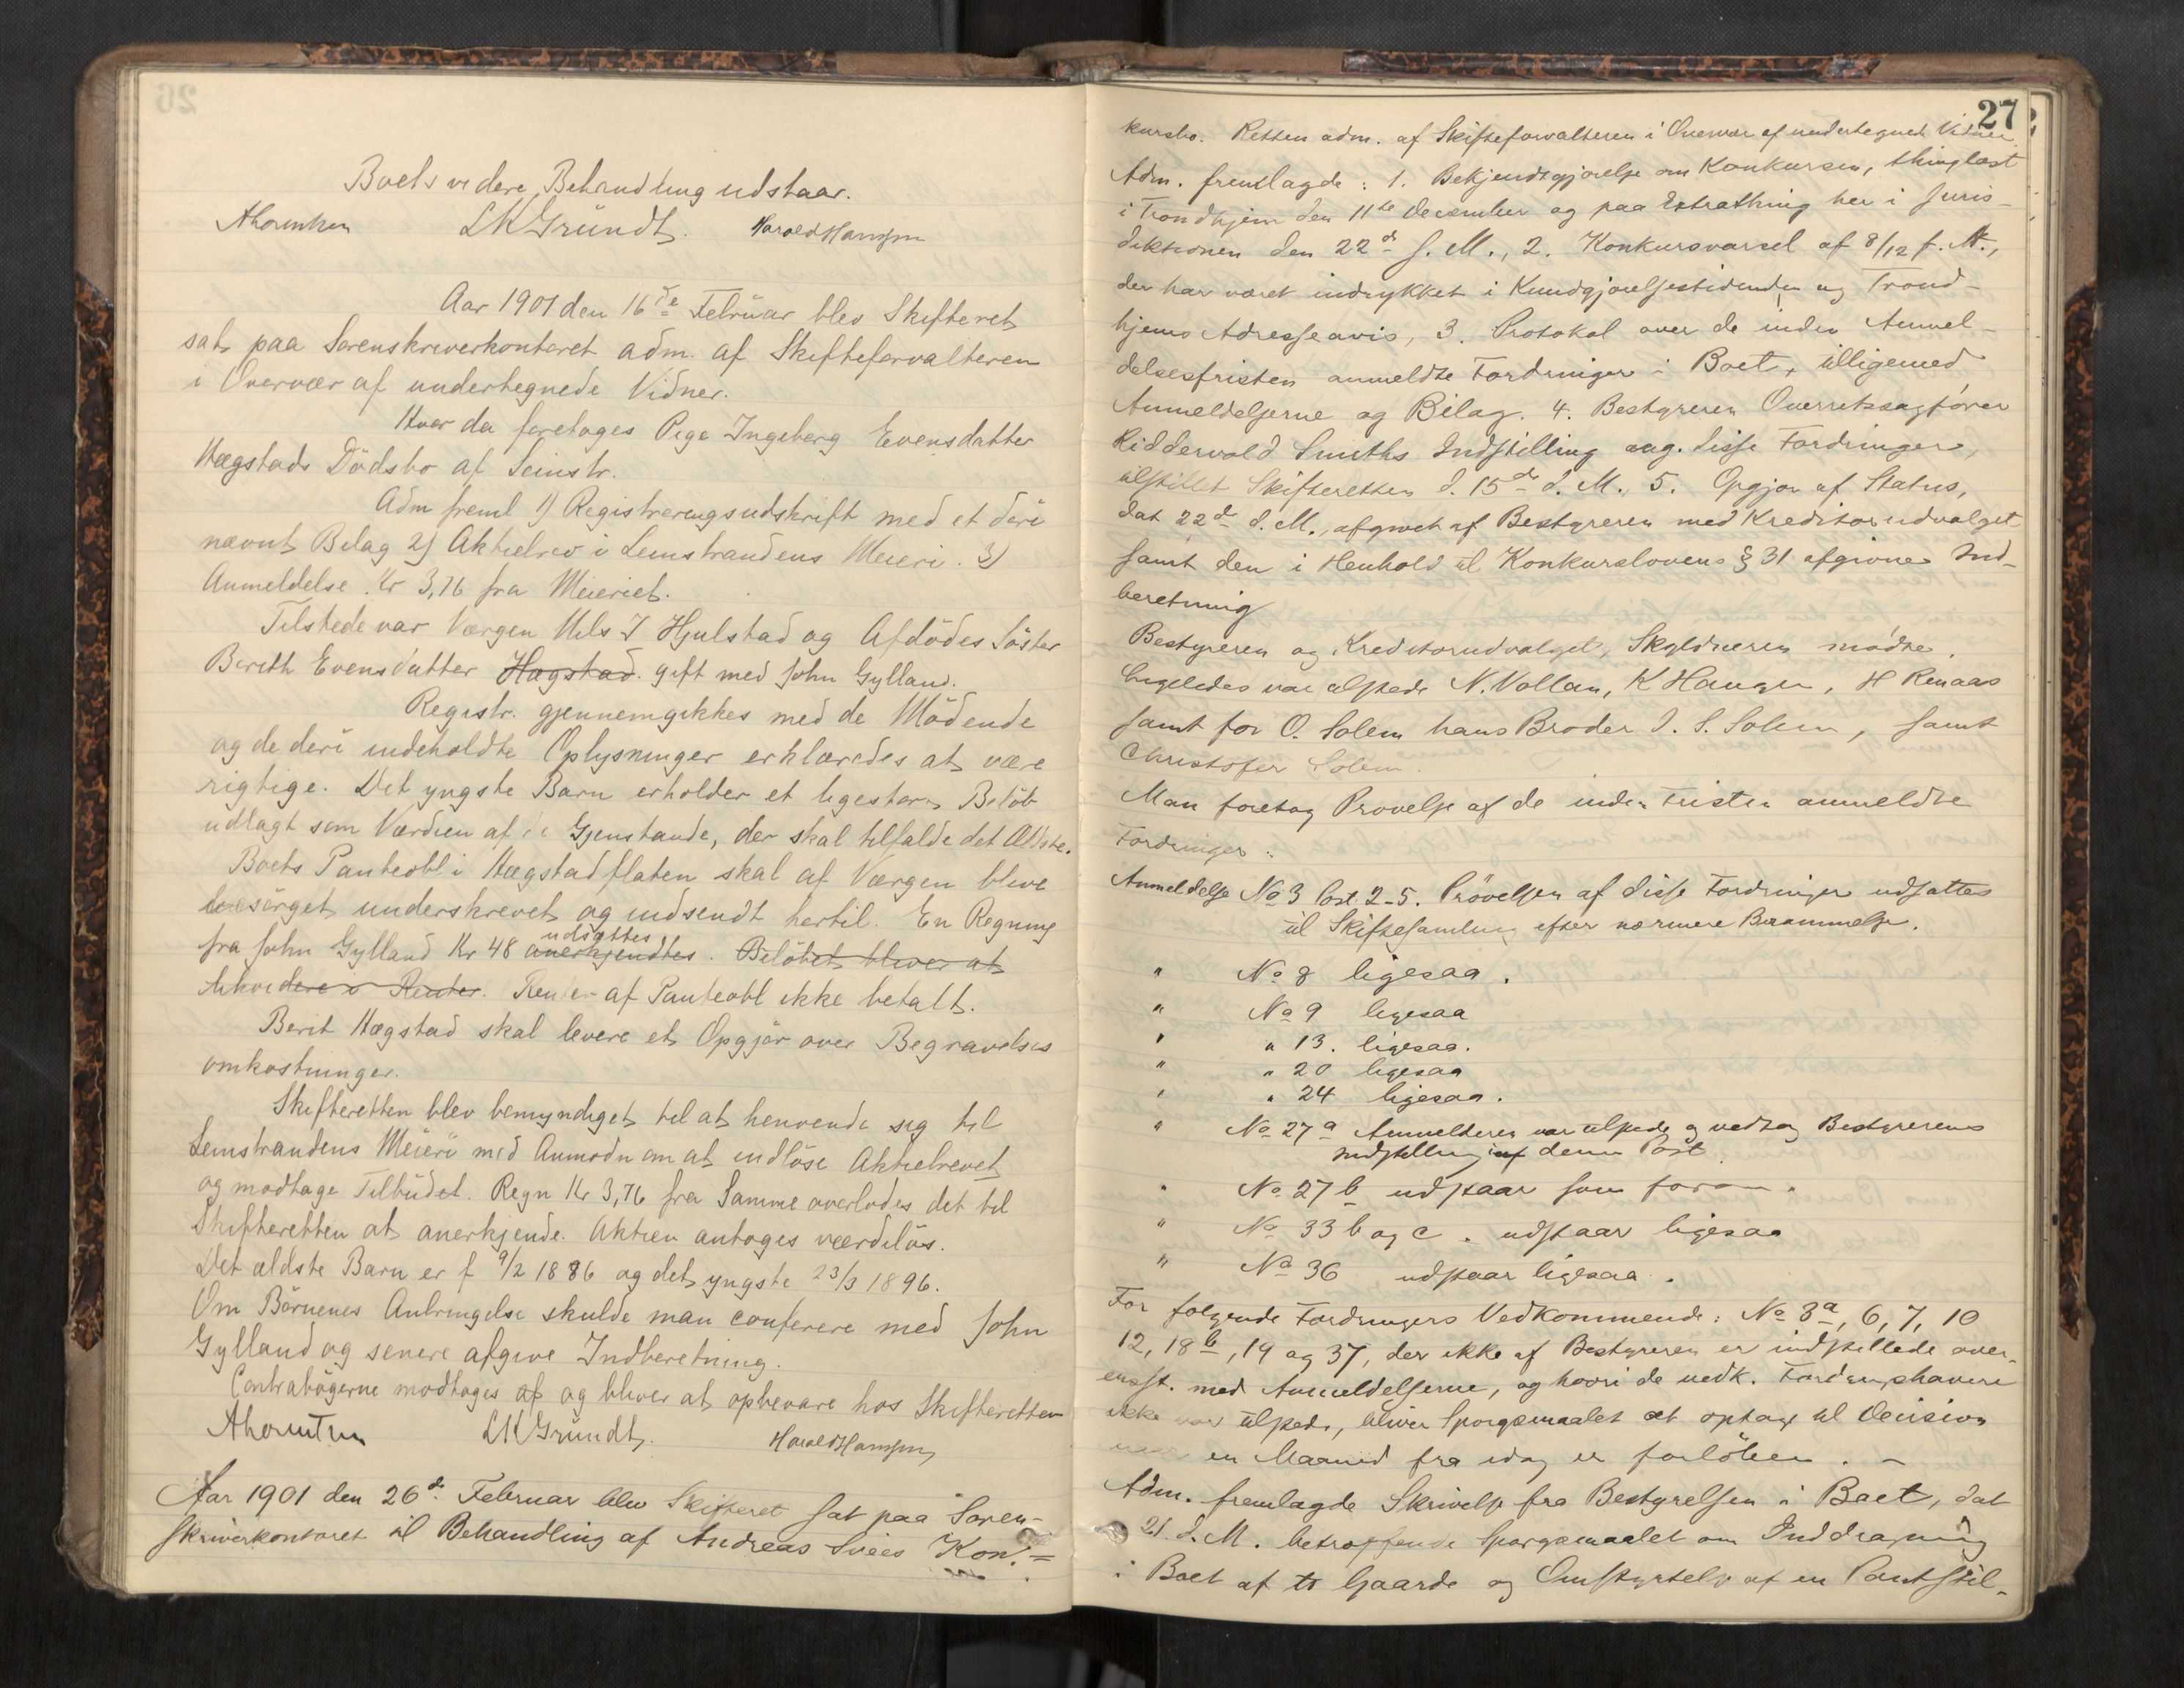 Boets videre Behandling udstaar.
LKGründt. Harald Hansen
Aar 1901 den 16de Februar blev Skifteret
sat paa Sorenskriverkontoret adm. af Skifteforvalteren
i Overvær af undertegnede Vidner.
Hvor da foretoges Pige Ingeborg Evensdatter
Hægstads Dödsbo af Leinstr.
Adm freml 1) Registreringsudskrift med et deri
nævnt Bilag 2) Aktiebrev i Leinstrandens Meieri. 3)
Anmeldelse Kr 3,76 fra Meieriet.
Tilstede var Værgen Nils J Hjulstad og Afdödes Söster
Berith Evensdatter Hagstad. gift med John Gylland.
Registr. gjennemgikkes med de Mödende
og de deri indeholdte Oplysninger erklæredes at være
rigtige. Det yngste Barn erholder et ligestort Belöb
udlagt som Værdien af de Gjenstande, der skal tilfalde det Ældste.
Boets Panteobl i Hægstadflaten skal af Værgen blive
besörget underskrevet og indsendt hertil. En Regning
udsattes
fra John Gylland Kr 48 anerkjendtes. Belöbet bliver at
likvidere i Renter. Renter af Panteobl ikke betalt.
Berit Hægstad skal levere et Opgjör over Begravelses
omkostninger.
Skifteretten blev bemyndiget til at henvende sig til
Leinstrandens Meieri med Anmodn om at indlöse Aktiebrevet
og modtage Tilbudet. Regn Kr 3,76 fra Samme overlodes det til
Skifteretten at anerkjende. Aktien antoges værdilös.
Det ældste Barn er f 9/2 1886 og det yngste 23/3 1896.
Om Börnenes Anbringelse skulde man conferere med John
Gylland og senere afgive Indberetning.
Contrabögerne modtoges af og bliver at opbevare hos Skifteretten
LKGründt. Harald Hansen
Aar 1901 den 26de Februar blev Skifteret sat paa Soren-
skriverkontoret til Behandling af Andreas Svees Kon-
27
kursbo. Retten adm. af Skifteforvalteren i Overvær af undertegnede Vidner
Adm. fremlagde: 1. Bekjendtgjørelse om Konkursen, thinglæst
i Trondhjem den 11te December og paa Extrathing her i Juris-
diktionen den 22de s. M., 2. Konkursvarsel af 8/12 f. A.,
der har været indrykket i Kundgjørelsestidende og Trond-
hjems Adresseavis, 3. Protokol over de inden Anmel-
delsesfristen anmeldte Fordringer i Boet, tilligemed
Anmeldelserne og Bilag. 4. Bestyreren Overretssagfører
Riddervold Smiths Indstilling ang. disse Fordringer,
tilstillet Skifteretten d. 15de d. M., 5. Opgjør af Status,
dat 22de d. M., afgivet af Bestyreren med Kreditorudvalget
samt den i Henhold til Konkurslovens § 31 afgivne Ind-
beretning
Bestyreren og Kreditorudvalget, Skyldneren mødte.
Ligeledes var tilstede N. Vollan, K Haugen, H Renaas
samt for O. Solem hans Broder I. S. Solem, samt
Christofer Solem.
Man foretog Prøvelse af de inden Fristen anmeldte
Fordringer:
Anmeldelse No 3 Post 2-5. Prövelsen af disse Fordringer udsattes
til Skiftesamling efter nærmere Berammelse.
" No 8 ligesaa.
" No 9 ligesaa
" " 13. ligesaa.
" " 20 ligesaa
" " 24 ligesaa.
" No 27a Anmelderen var tilstede og vedtog Bestyrerens
Indstilling af denne Post.
" No 27b udstaar som foran.
" No 33 b og c. udstaar ligesaa
" No 36 udstaar ligesaa.
For følgende Fordringers Vedkommende: No 3a, 6, 7, 10
12, 18b, 19 og 37, der ikke af Bestyreren er indstillede over-
ensst. med Anmeldelserne, og hvori de vedk. Fordringshavere
ikke var tilstede, bliver Spørgsmaalet at optage til Decision
naar en Maaned fra idag er forlöben. -
Adm. fremlagde Skrivelse fra Bestyrelsen i Boet, dat
21. d. M. betræffende Spørgsmaalet om Inddragning
i Boet af to Gaarde og Omstyrtelse af en Pantstil-